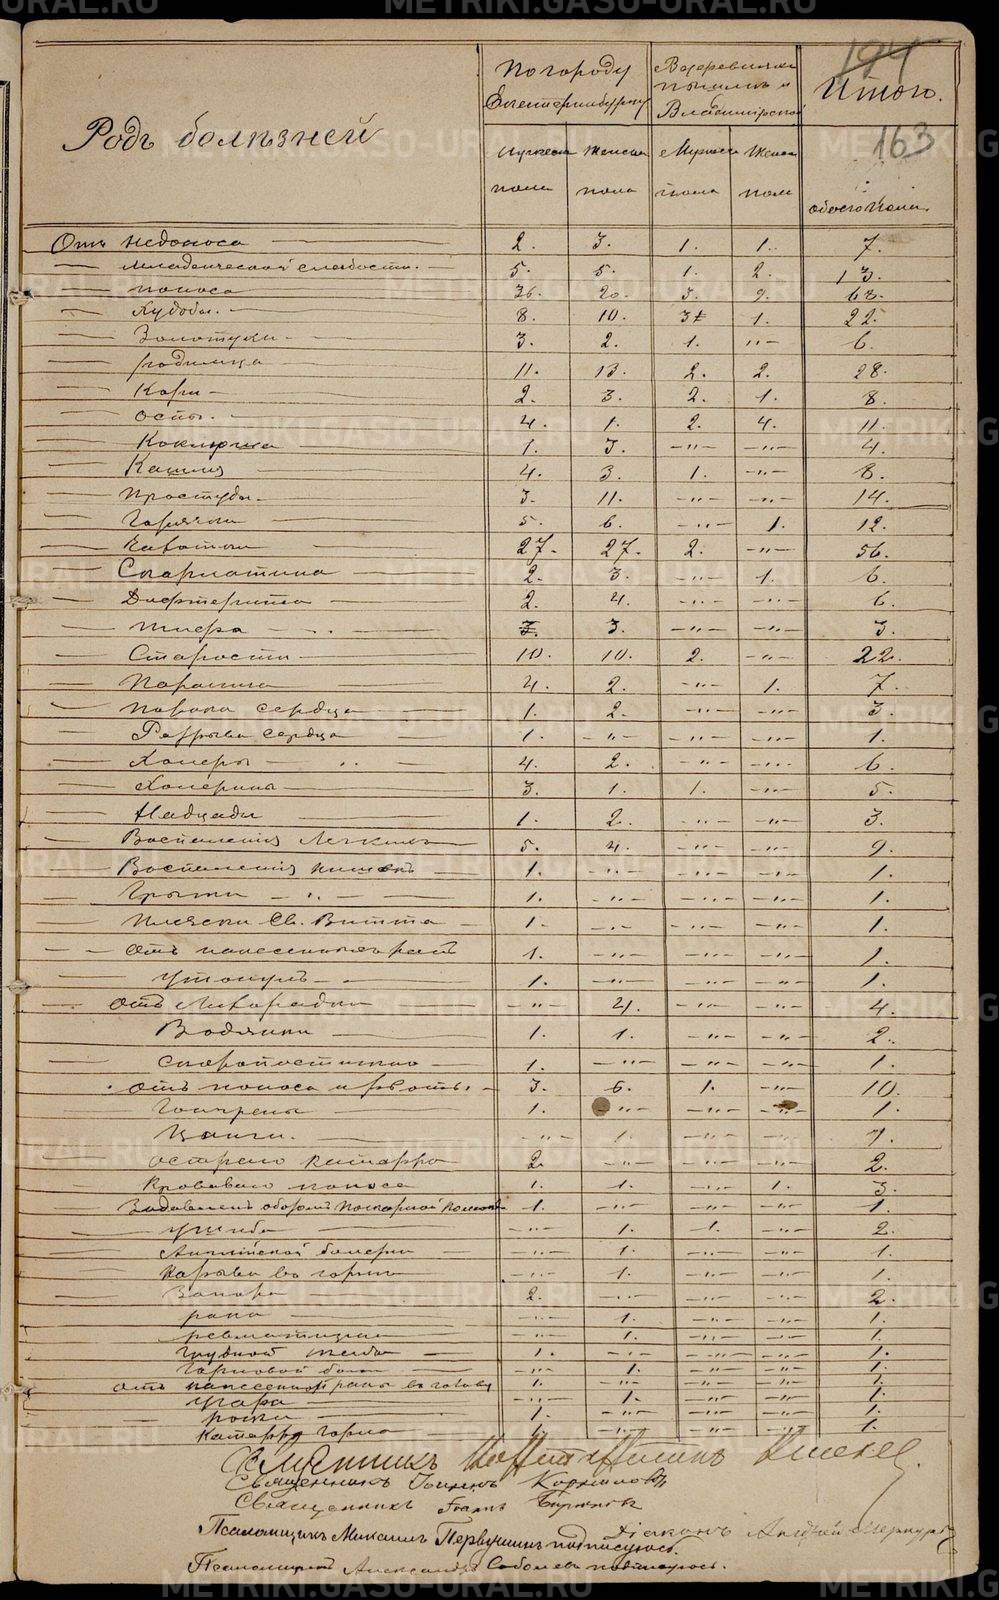 194
163
Родъ болѣзней
По городу Екатеринбургу
В деревняхъ
Итого.
Мужеска пола
Женска пола
Мужеска пола
Женска пола
обоего пола.
Отъ недоноса 2. 3. 1. 1. 7.
— младенческой слабости. 5. 5. 1. 2. 13.
— поноса 36. 20. 3. 9. 68.
— Худобы. 8. 10. 3 1. 22.
— Золотухи 3. 2. 1. „ 6.
— родимца 11. 13. 2. 2. 28.
— Кори 2. 3. 2. 1. 8.
— Оспы. 4. 1. 2. 4. 11.
— Коклюша 1. 3. „ „ 4.
— Кашля 4. 3. 1. „ 8.
— Простуды. 3. 11. „ „ 14.
— Горячки 5. 6. „ 1. 12.
— Чахотки 27. 27. 2. „ 56.
— Скарлатина 2. 3. „ 1. 6.
— Дифтерита 2. 4. „ „ 6.
— тифа 3. 3. „ „ 3.
— Старости 10. 10. 2. „ 22.
— Паралича 4. 2. „ 1. 7.
— Порока сердца 1. 2. „ „ 3.
— Разрыва сердца 1. „ „ „ 1.
— Холеры 4. 2. „ „ 6.
— Холерины 3. 1. 1. „ 5.
— 1. 2. „ „ 3.
— Воспаления Легкихъ 5. 4. „ „ 9.
— Воспаления кишекъ 1. „ „ „ 1.
— Грыжи 1. „ „ „ 1.
— Пляски Св. Витта 1. „ „ „ 1.
— Отъ нанесенныхъ ранъ 1. „ „ „ 1.
— Утонулъ 1. „ „ „ 1.
— отъ Лихорадки „ 4. „ „ 4.
Водянки 1. 1. „ „ 2.
Скоропостижно 1. „ „ „ 1.
отъ поноса и рвоты. 3. 6. 1. „ 10.
Гангрены 1. „ „ „ 1.
Цынги. „ 1. „ „ 1.
острого катарра 2. „ „ „ 2.
Кроваваго поноса 1. 1. „ 1. 3.
Задавленъ обозомъ пожарной 1. „ „ „ 1.
ушиба „ 1. 1. „ 2.
Английской болезни „ 1. „ „ 1.
Нарыва въ горле „ 1. „ „ 1.
Запора 2. „ „ „ 2.
рака „ 1. „ „ 1.
ревматизма „ 1. „ „ 1.
грудной жабы 1. „ „ „ 1.
Горловой боли „ 1. „ „ 1.
отъ нанесенной раны въ голову 1. „ „ „ 1.
Угара „ 1. „ „ 1.
рожи 1. „ „ „ 1.
Катарра горла „ „ „ 1.
Священникъ
Священникъ Іоаннъ Корниловъ
Священникъ Іоаннъ Бирюковъ
Діаконъ Андрей
Псаломщикъ Михаилъ Первушинъ подписуюсь.
Псаломщикъ Александръ Соболевъ подписуюсь.
METRIKI.GASO-URAL.RU